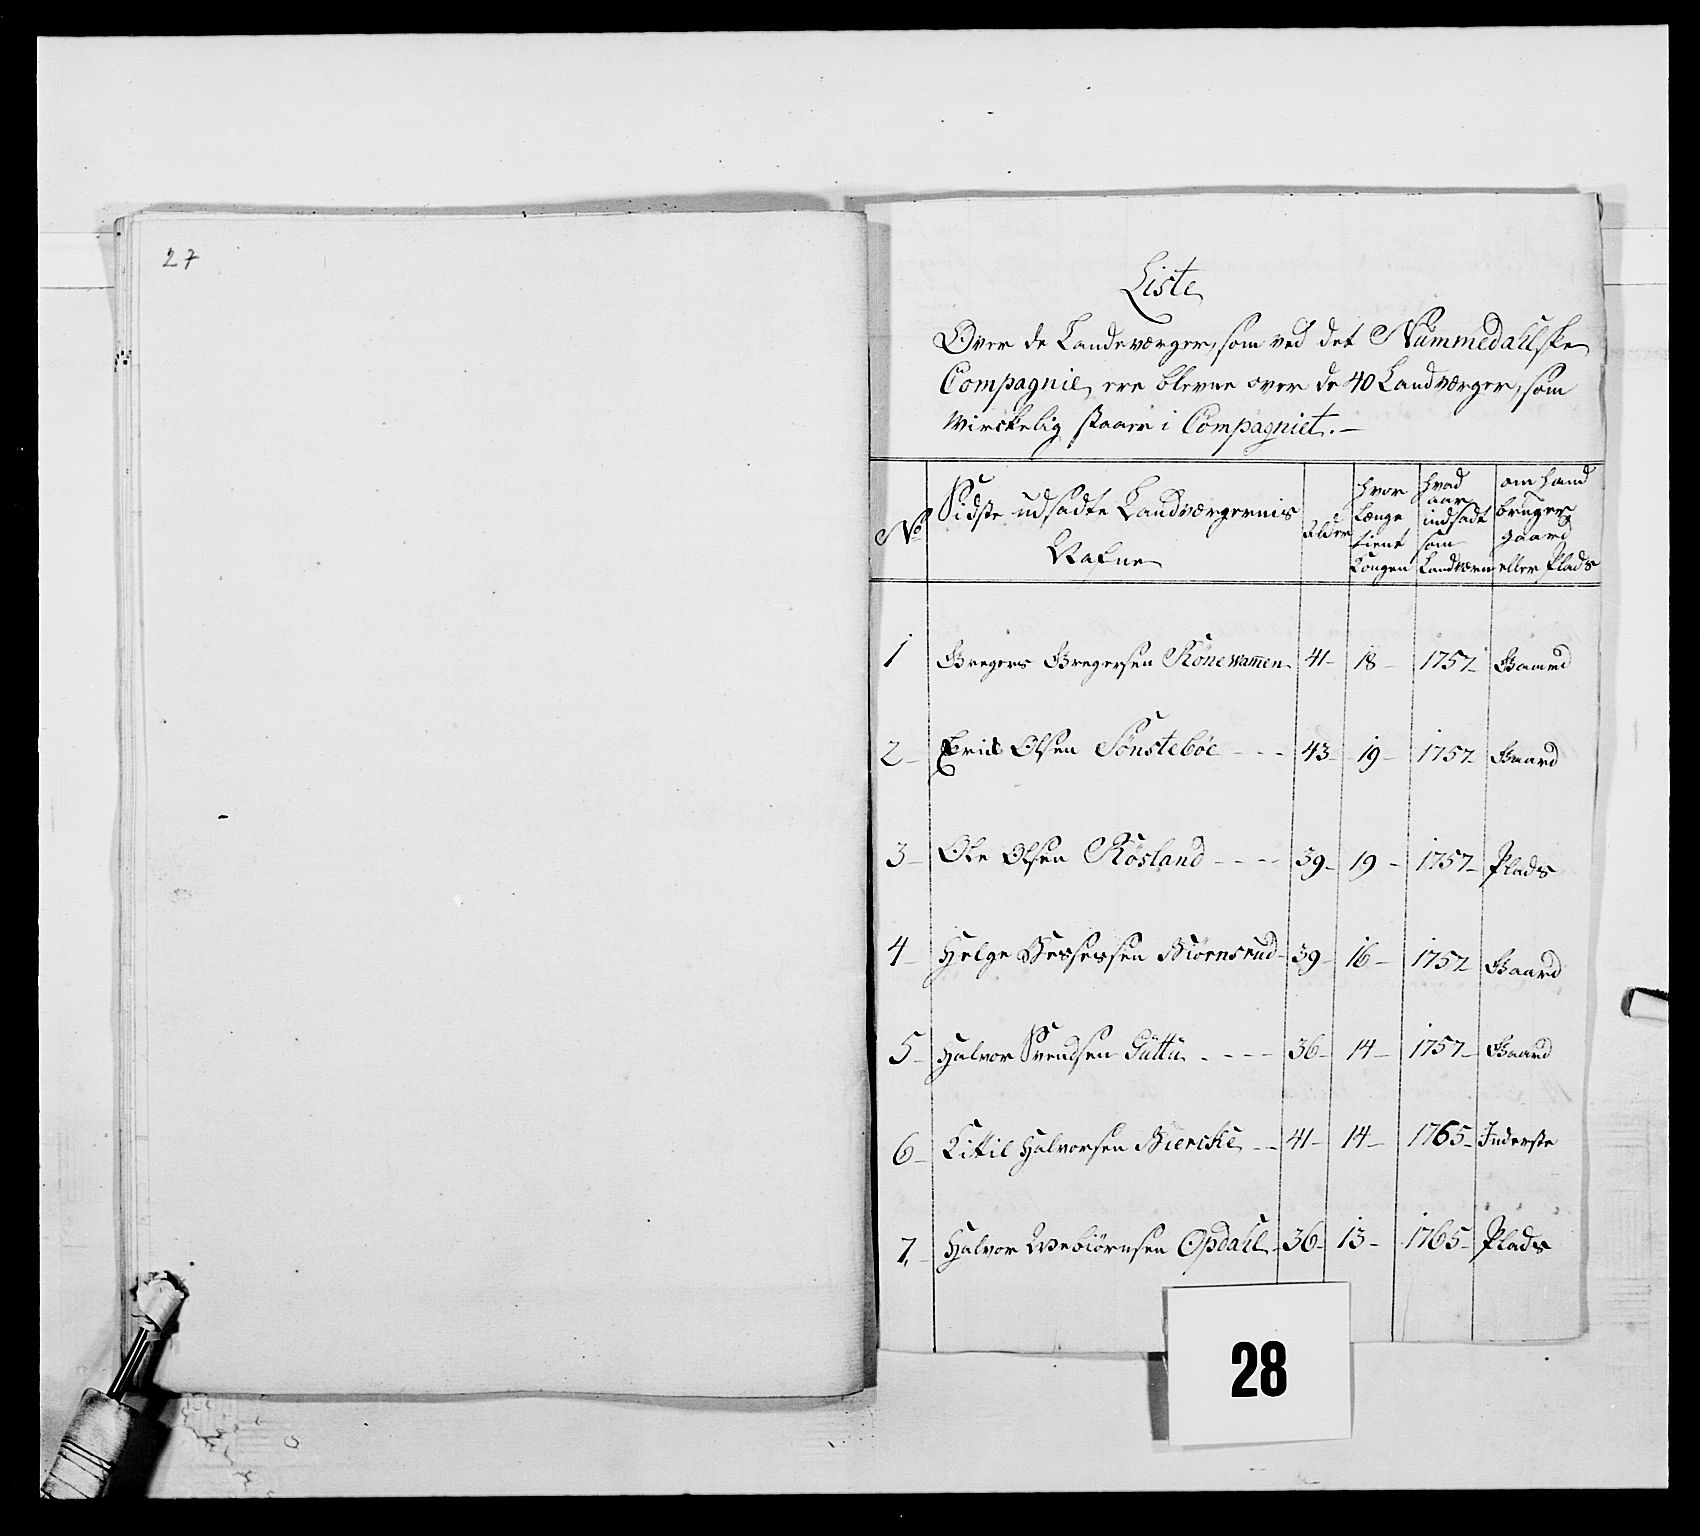 27
Liste
Over de Landeværger, som ved det Nummedahlske
Compagnie, ere blevne over de 40 Landværger, som
Wirckelig staaer i Compagniet. —
No
Sidste udsadte Landværgernis
Nafne
Alder
hvor
længe
tient
Kongen
hvad
aar
indsadt
som
Landværn
om hand
bruger
gaard
eller Plads
1 Gregers Gregersen Rønewamen 41 - 18 - 1757 - Gaard
2 - Erick Olsen Sønstebøe - - - 43 - 19 - 1757 - Gaard
3 - Ole Olsen Røsland - - - - 39 - 19 - 1757 - Plads
4 - Helge Bessesen Biørnsrud - 39 - 16 - 1757 Gaard
5 - Halvor Svendsen Duttu - - - - 36 - 14 - 1757 - Gaard
6 - Kittil Halvorsen Biercke - - 41 - 14 - 1765 - Inderste
7. - Halvor Webiørnsen Opdahl - 36 - 13 - 1765 - Plads
28